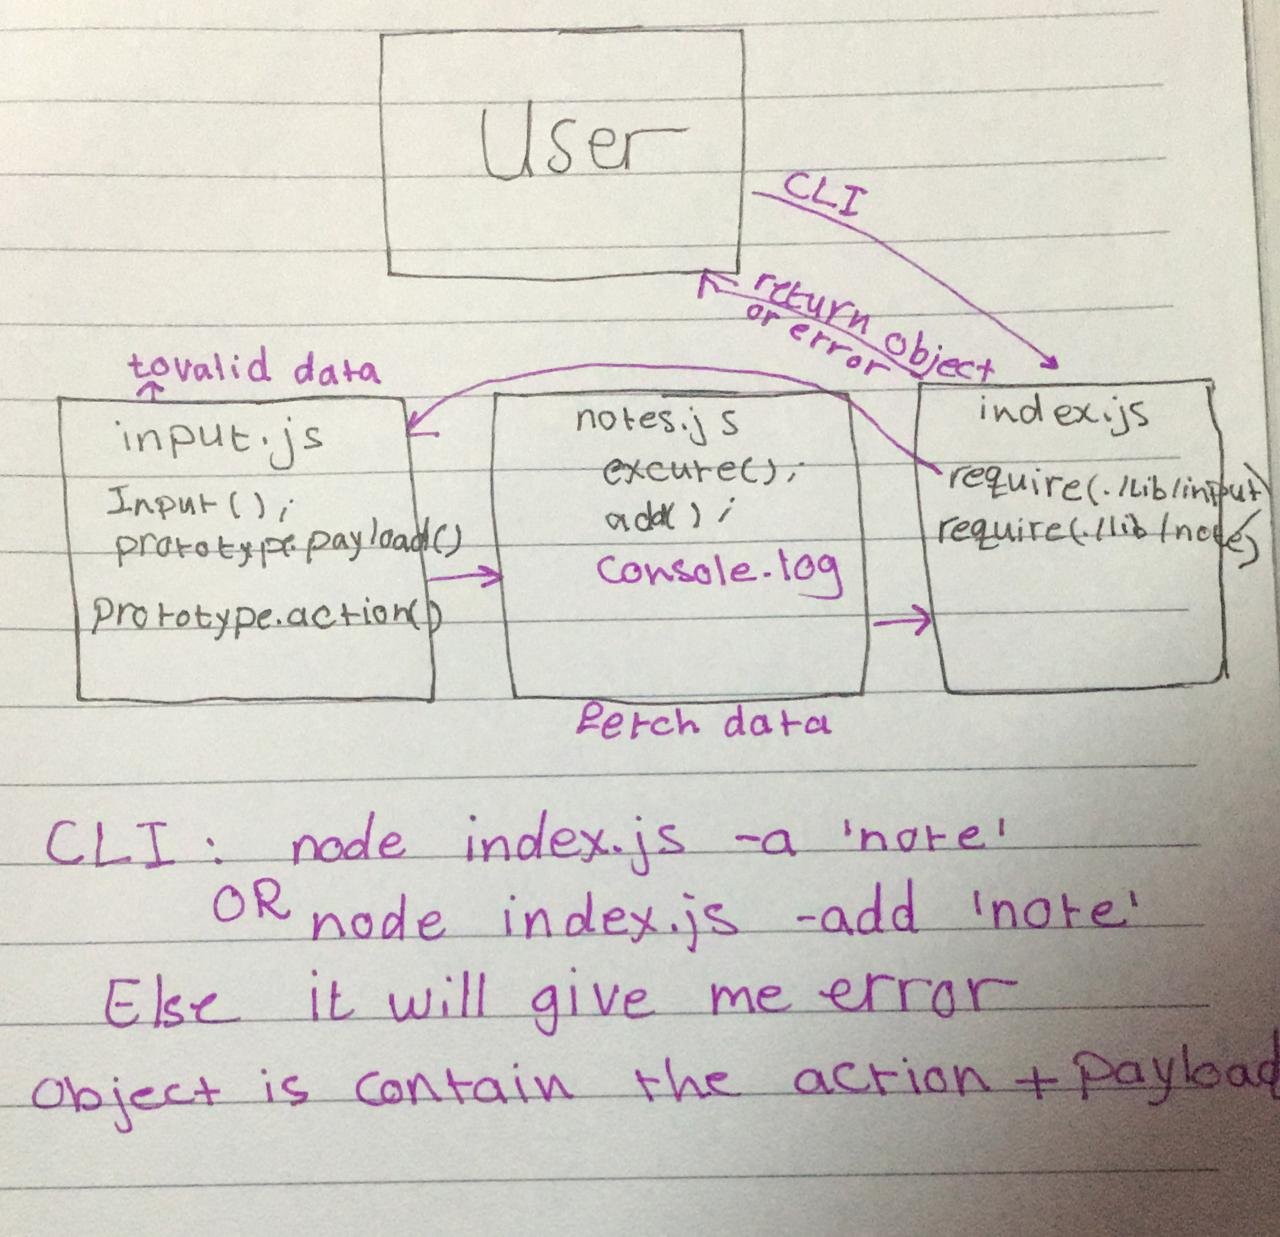 User
CLI
return object
or error
to valid data
input.js
Input();
prototype.payload()
prototype.action()
notes.js
excure();
add();
console.log
index.js
require(./lib/input)
require(./lib/note)
fetch data
CLI: node index.js -a 'note'
OR node index.js -add 'note'
Else it will give me error
object is contain the action + payload